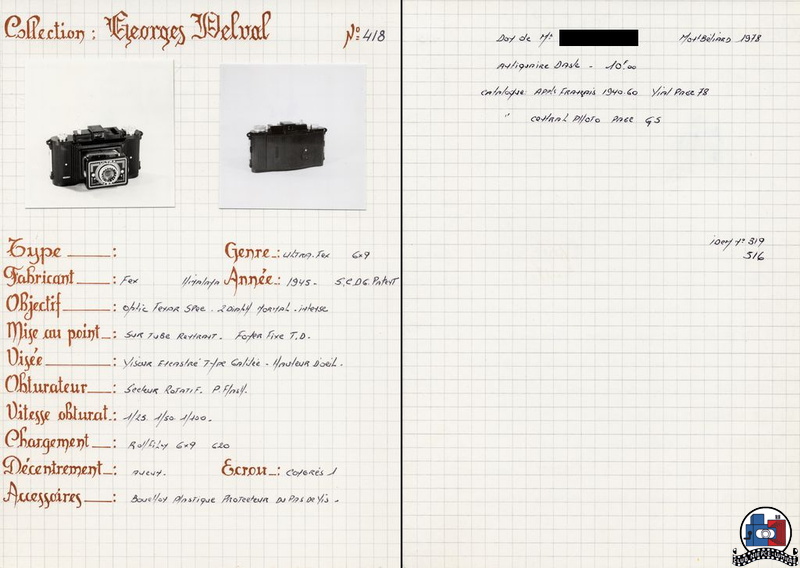 Collection : Georges Delval
N° 418
Type :
Genre : Ultra. Fex 6x9
Fabricant : Fex Himalaya
Année : 1945 - S.G.D.G. Patent
Objectif : Optic Fexar Spec. 2 Diaph Normal. intense
Mise au point : Sur Tube Rentrant. Foyer Fixe T.D.
Visée : Viseur Encastré Type Galilée - Hauteur D'oeil.
Obturateur : Secteur Rotatif. P. Flash.
Vitesse obturat. : 1/25. 1/50 1/100.
Chargement : Rollfilm 6x9 620
Décentrement :
Ecrou : Congrès 1
Accessoires : Bouchon Plastique Protecteur Du Pas de Vis -
Don de Mr
Montbéliard 1978
Antiquaire - 10F00
Catalogue App. Français 1940.60 Vial Page 78
" Central Photo Page 95
idem n° 319
516